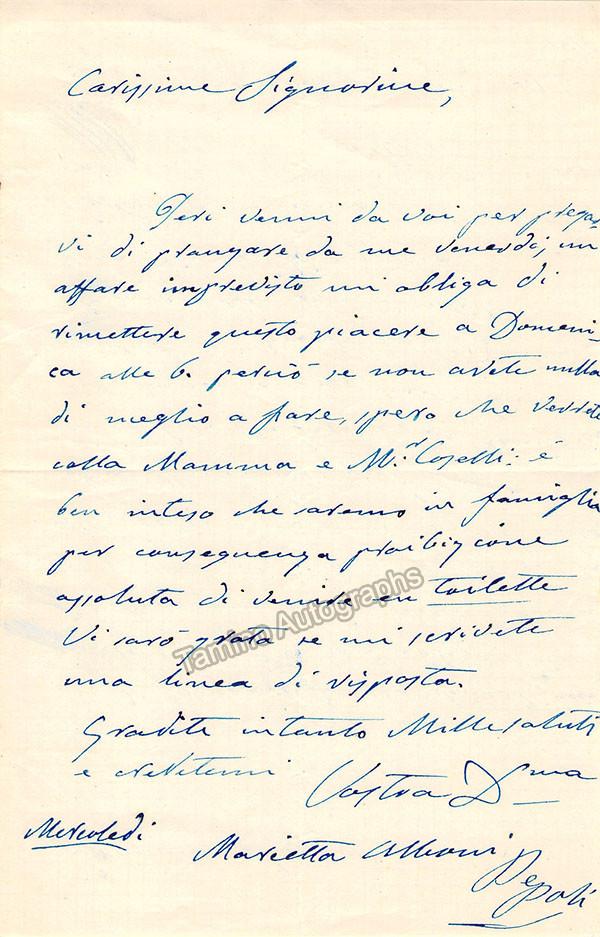 Carissime Signorine,
Ieri venni da voi per pregar
vi di pranzare da me venerdi; un
affare imprevisto mi obliga di
rimettere questo piacere a Domeni-
ca alle 6. perciò se non avete nulla
di meglio a fare, spero che verrete
colla Mamma e M.r Coselli: é
ben inteso che saremo in famiglia
per conseguenza proibizione
assoluta di venire en toilette
Vi sarò grata se mi scrivete
una linea di risposta.
Gradite intanto Mille saluti
e credetemi
Vostra D.ma
Mercoledi
Marietta Alboni
Pepoli
Tamino Autographs